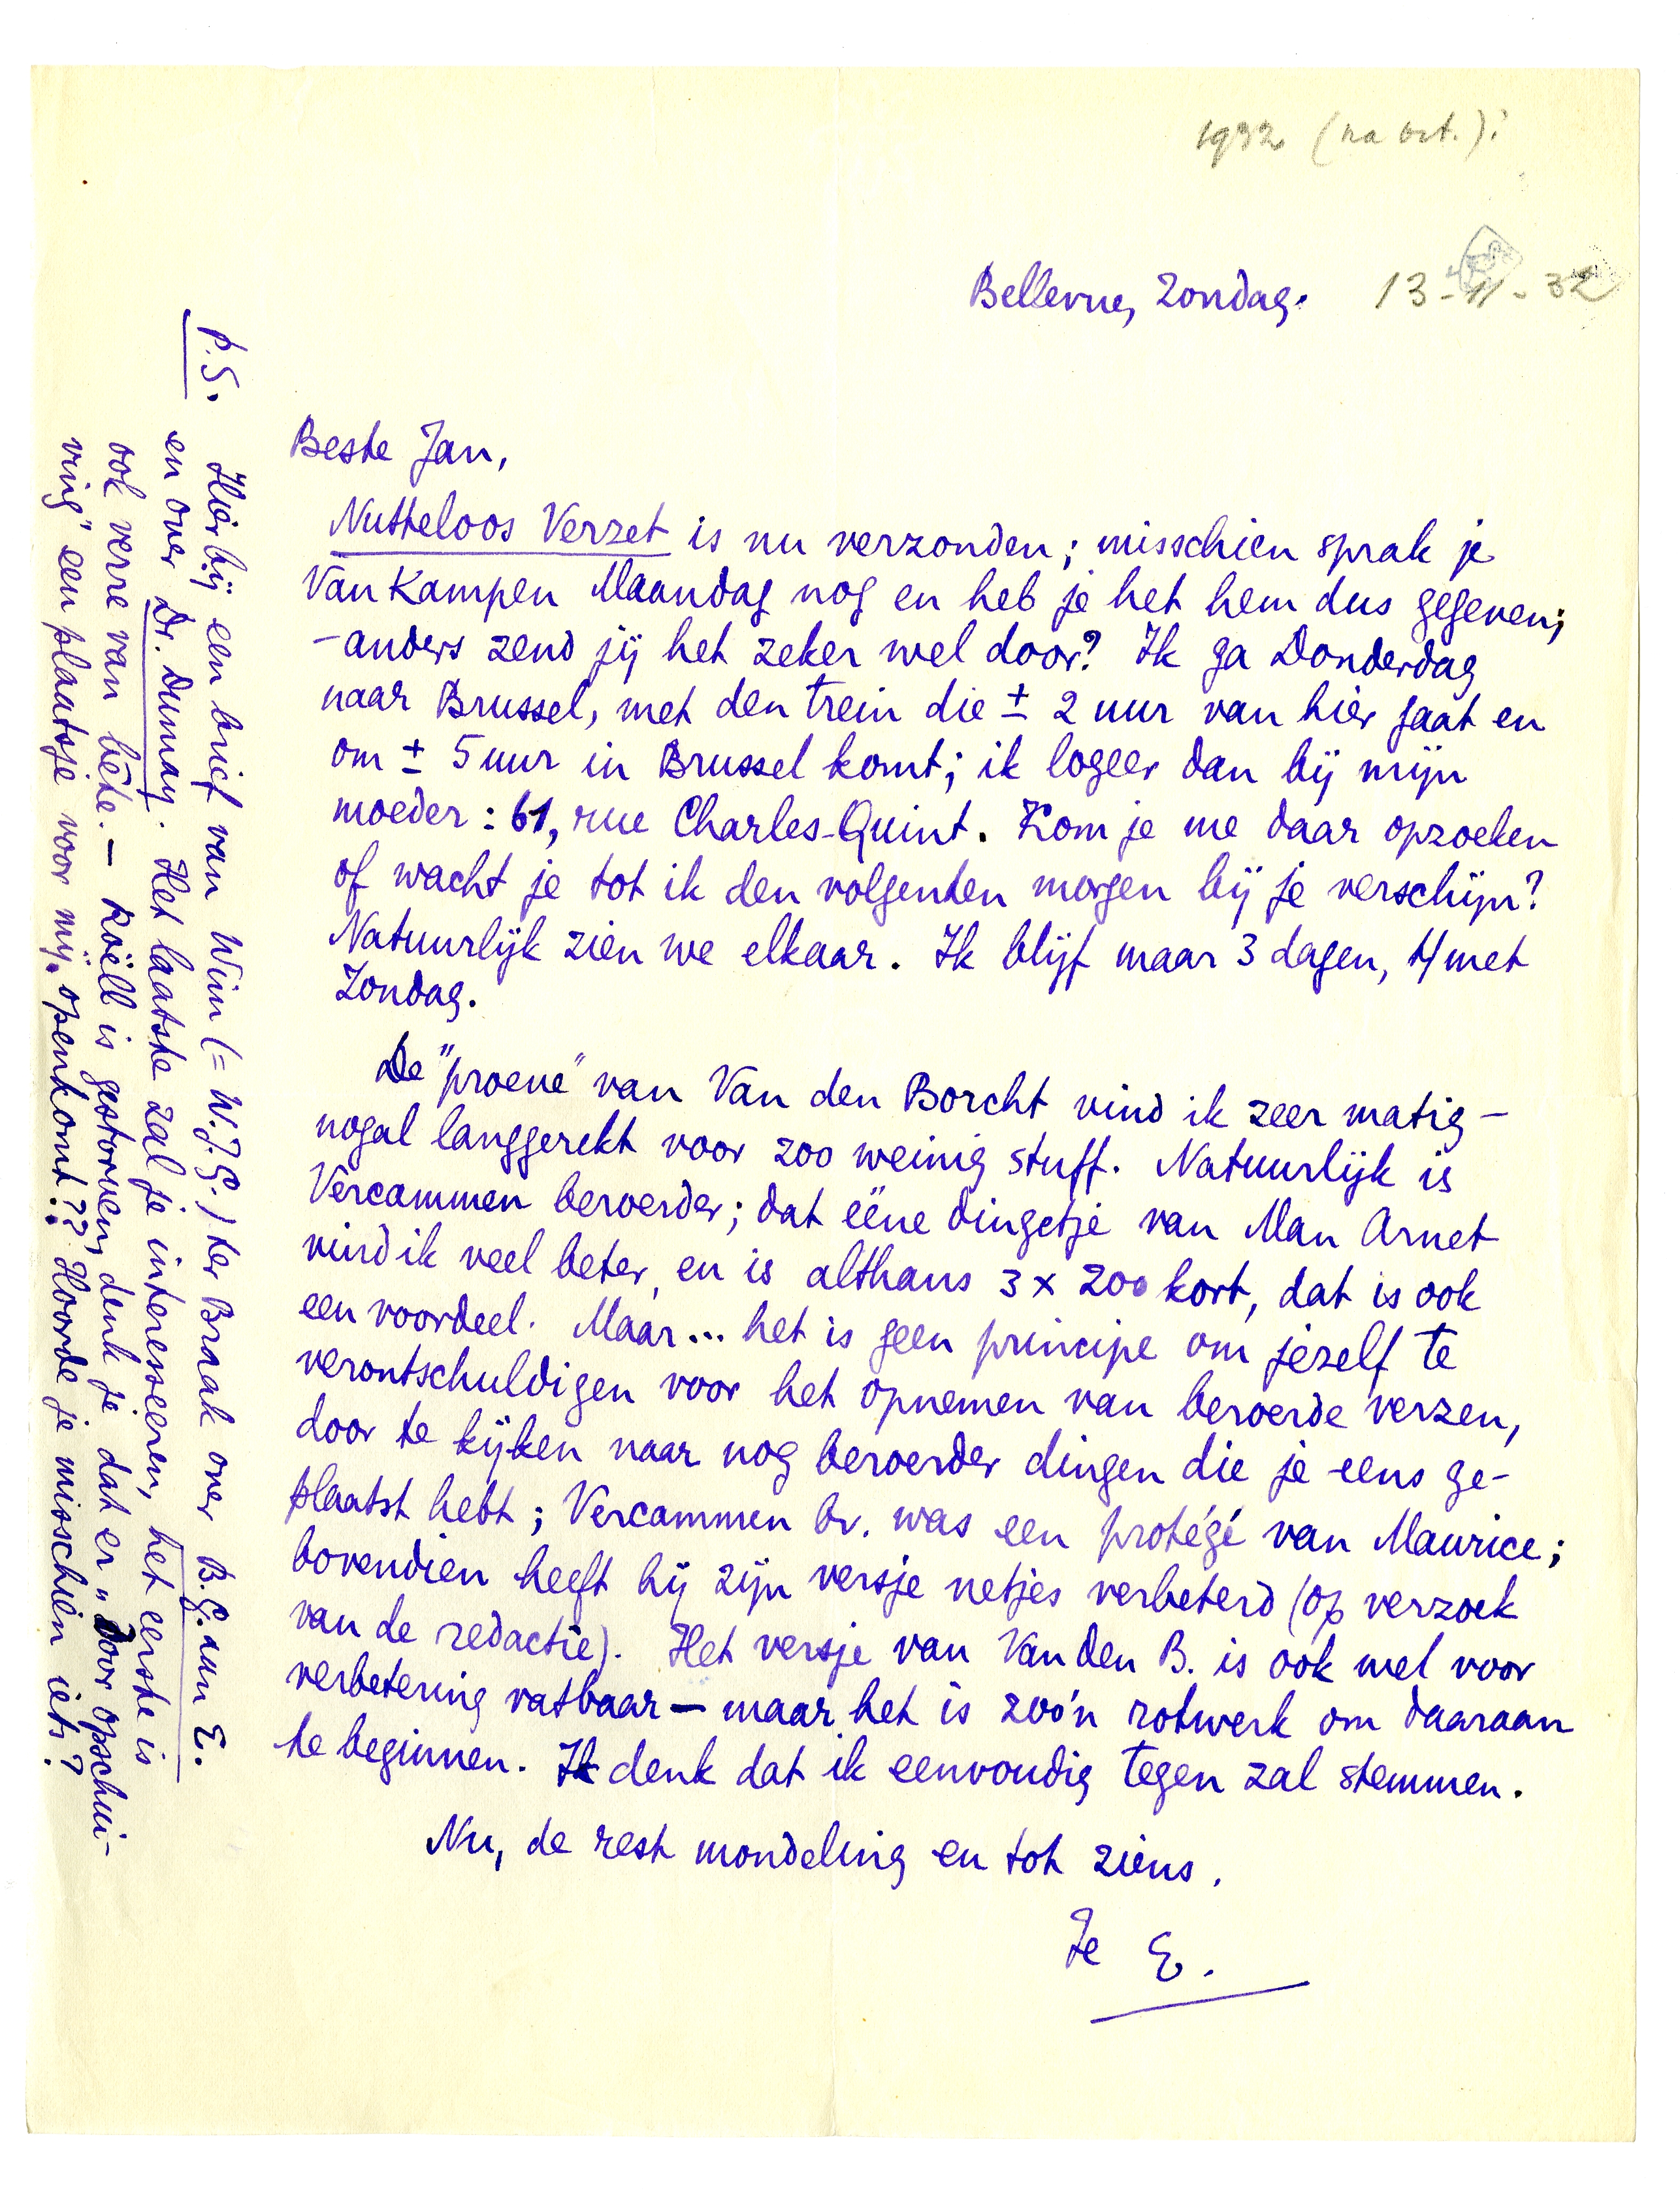 1932 (na oct.)
Bellevue, Zondag. 13-11-32
Beste Jan,
Nutteloos Verzet is nu verzonden; misschien sprak je
Van Kampen Maandag nog en heb je het hem dus gegeven;
- anders zend jij het zeker wel door? Ik ga Donderdag
naar Brussel, met den trein die ± 2 uur van hier gaat en
om ± 5 uur in Brussel komt; ik logeer dan bij mijn
moeder: 61, rue Charles-Quint. Kom je me daar opzoeken
of wacht je tot ik den volgenden morgen bij je verschijn?
Natuurlijk zien we elkaar. Ik blijf maar 3 dagen, t/met
Zondag.
De "proeve" van Van den Borcht vind ik zeer matig -
nogal langgerekt voor zoo weinig stuff. Natuurlijk is
Vercammen beroerder; dat ééne dingetje van Man Arnet
vind ik veel beter, en is althans 3 x zoo kort, dat is ook
een voordeel. Maar... het is geen principe om jezelf te
verontschuldigen voor het opnemen van beroerde verzen,
door te kijken naar nog beroerder dingen die je eens ge-
plaatst hebt; Vercammen bv. was een protégé van Maurice;
bovendien heeft hij zijn versje netjes verbeterd (op verzoek
van de redactie). Het versje van Van den B. is ook wel voor
verbetering vatbaar — maar het is zoo'n rotwerk om daaraan
te beginnen. Ik denk dat ik eenvoudig tegen zal stemmen.
Nu, de rest mondeling en tot ziens.
Je E.
P.S. Hierbij een brief van Wim (= W.J.G.) ter Braak over B.G. aan E.
en over Dr. Dumay. Het laatste zal je interesseeren, het eerste is
ook verre van bête. — Roëll is gestorven; denk je dat er "door opschui-
ving" een plaatsje voor mij openkomt?? Hoorde je misschien iets?